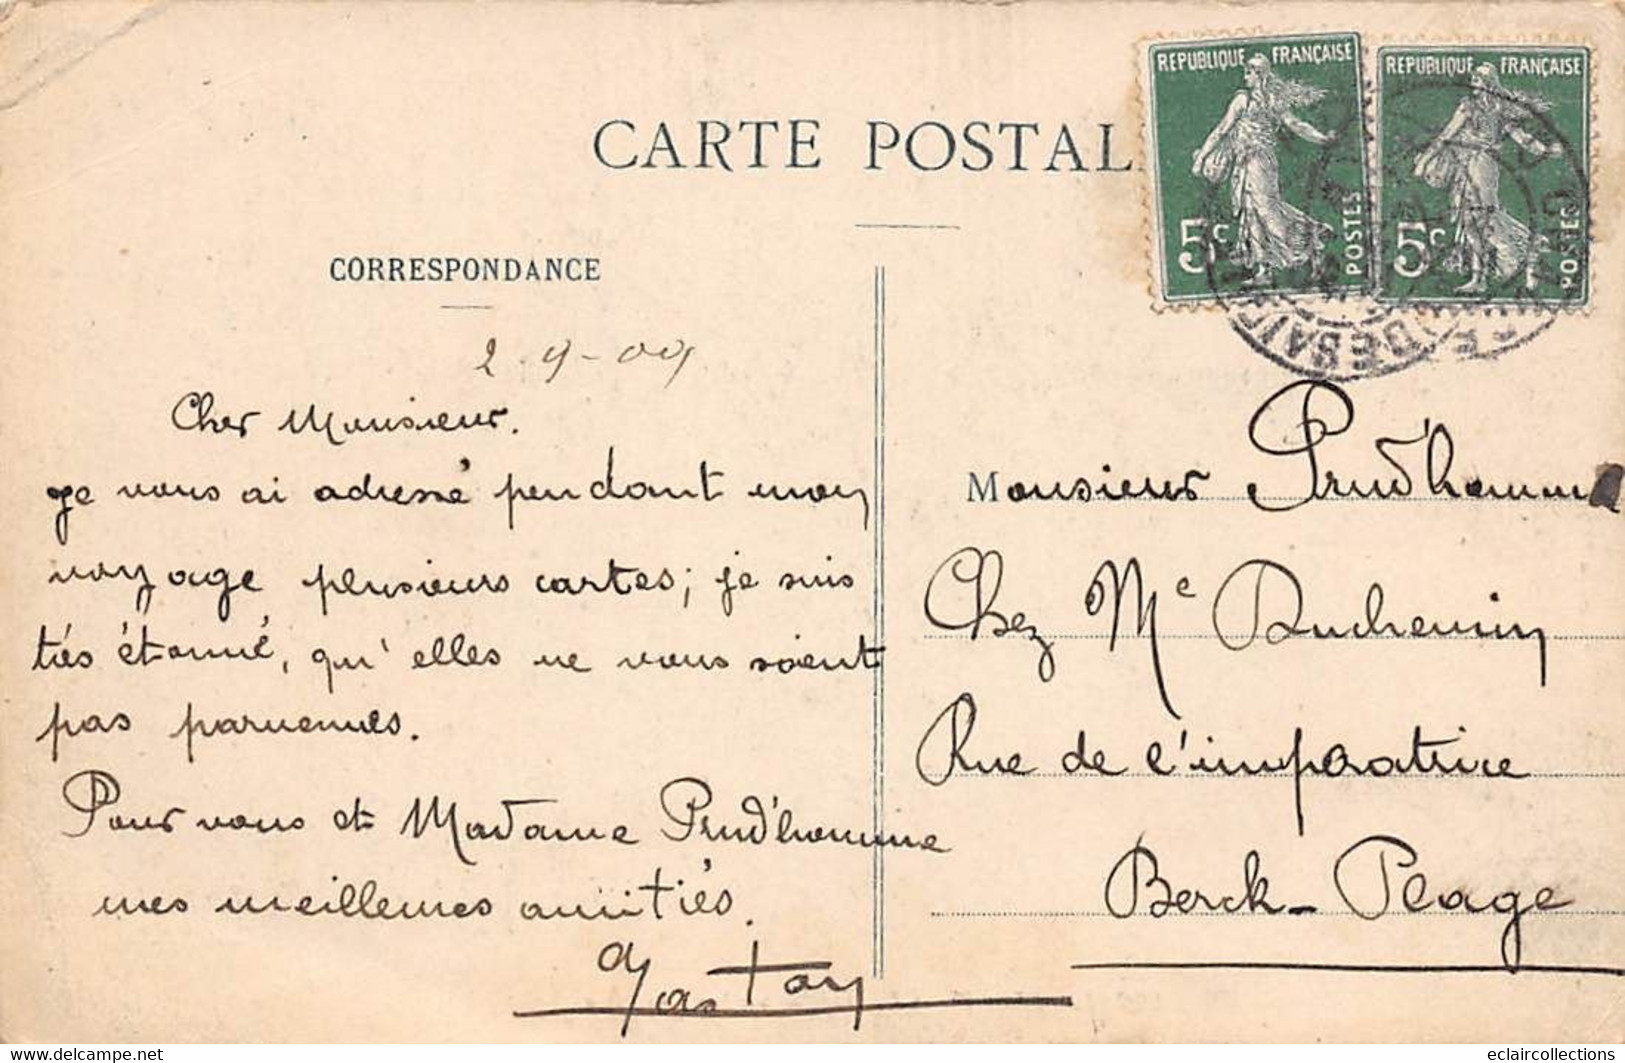 CARTE POSTAL
REPUBLIQUE FRANÇAISE
5c POSTES
REPUBLIQUE FRANÇAISE
5c POSTES
CORRESPONDANCE
2-9-09
Cher Monsieur.
je vous ai adressé pendant mon
voyage plusieurs cartes; je suis
très étonné, qu'elles ne vous soient
pas parvenues.
Pour vous et Madame Prud'homme
mes meilleures amitiés.
Gaston
Monsieur Prud'homme
Chez Me Duchemin
Rue de l'impératrice
Berck-Plage
www.delcampe.net
eclaircollections